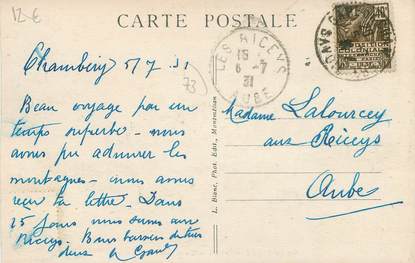 12 €
CARTE POSTALE
LES RICEYS
15
6-7
31
AUBE
Chambéry 5/7 31
73
Beau voyage par un
temps superbe - nous
avons pu admirer les
montagnes - avons
reçu ta lettre - Dans
15 jours nous serons aux
Riceys. Bons baisers de tous
deux
Madame Lalourcey
aux Riceys
Aube
L. Blanc, Phot. Edit., Montmélian